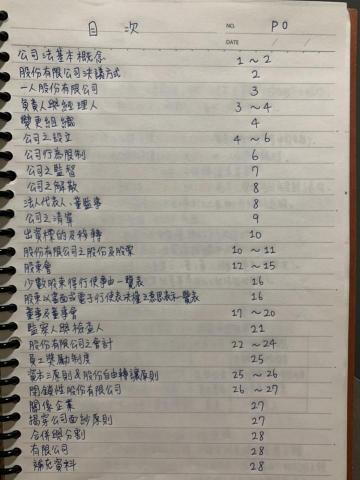 目 次 NO. P0
DATE / /
公司法基本概念 1～2
股份有限公司決議方式 2
一人股份有限公司 3
負責人與經理人 3～4
變更組織 4
公司之設立 4～6
公司行為限制 6
公司之監督 7
公司之解散 8
法人代表人、董監事 8
公司之清算 9
出資標的及移轉 10
股份有限公司之股份及股票 10～11
股東會 12～15
少數股東得行使事由一覽表 16
股東以書面或電子行使表決權之意思表示一覽表 16
董事及董事會 17～20
監察人與檢查人 21
股份有限公司之會計 22～24
員工獎勵制度 25
資本三原則及股份自由轉讓原則 25～26
閉鎖性股份有限公司 26～27
關係企業 27
揭穿公司面紗原則 27
合併與分割 28
有限公司 28
補充資料 28